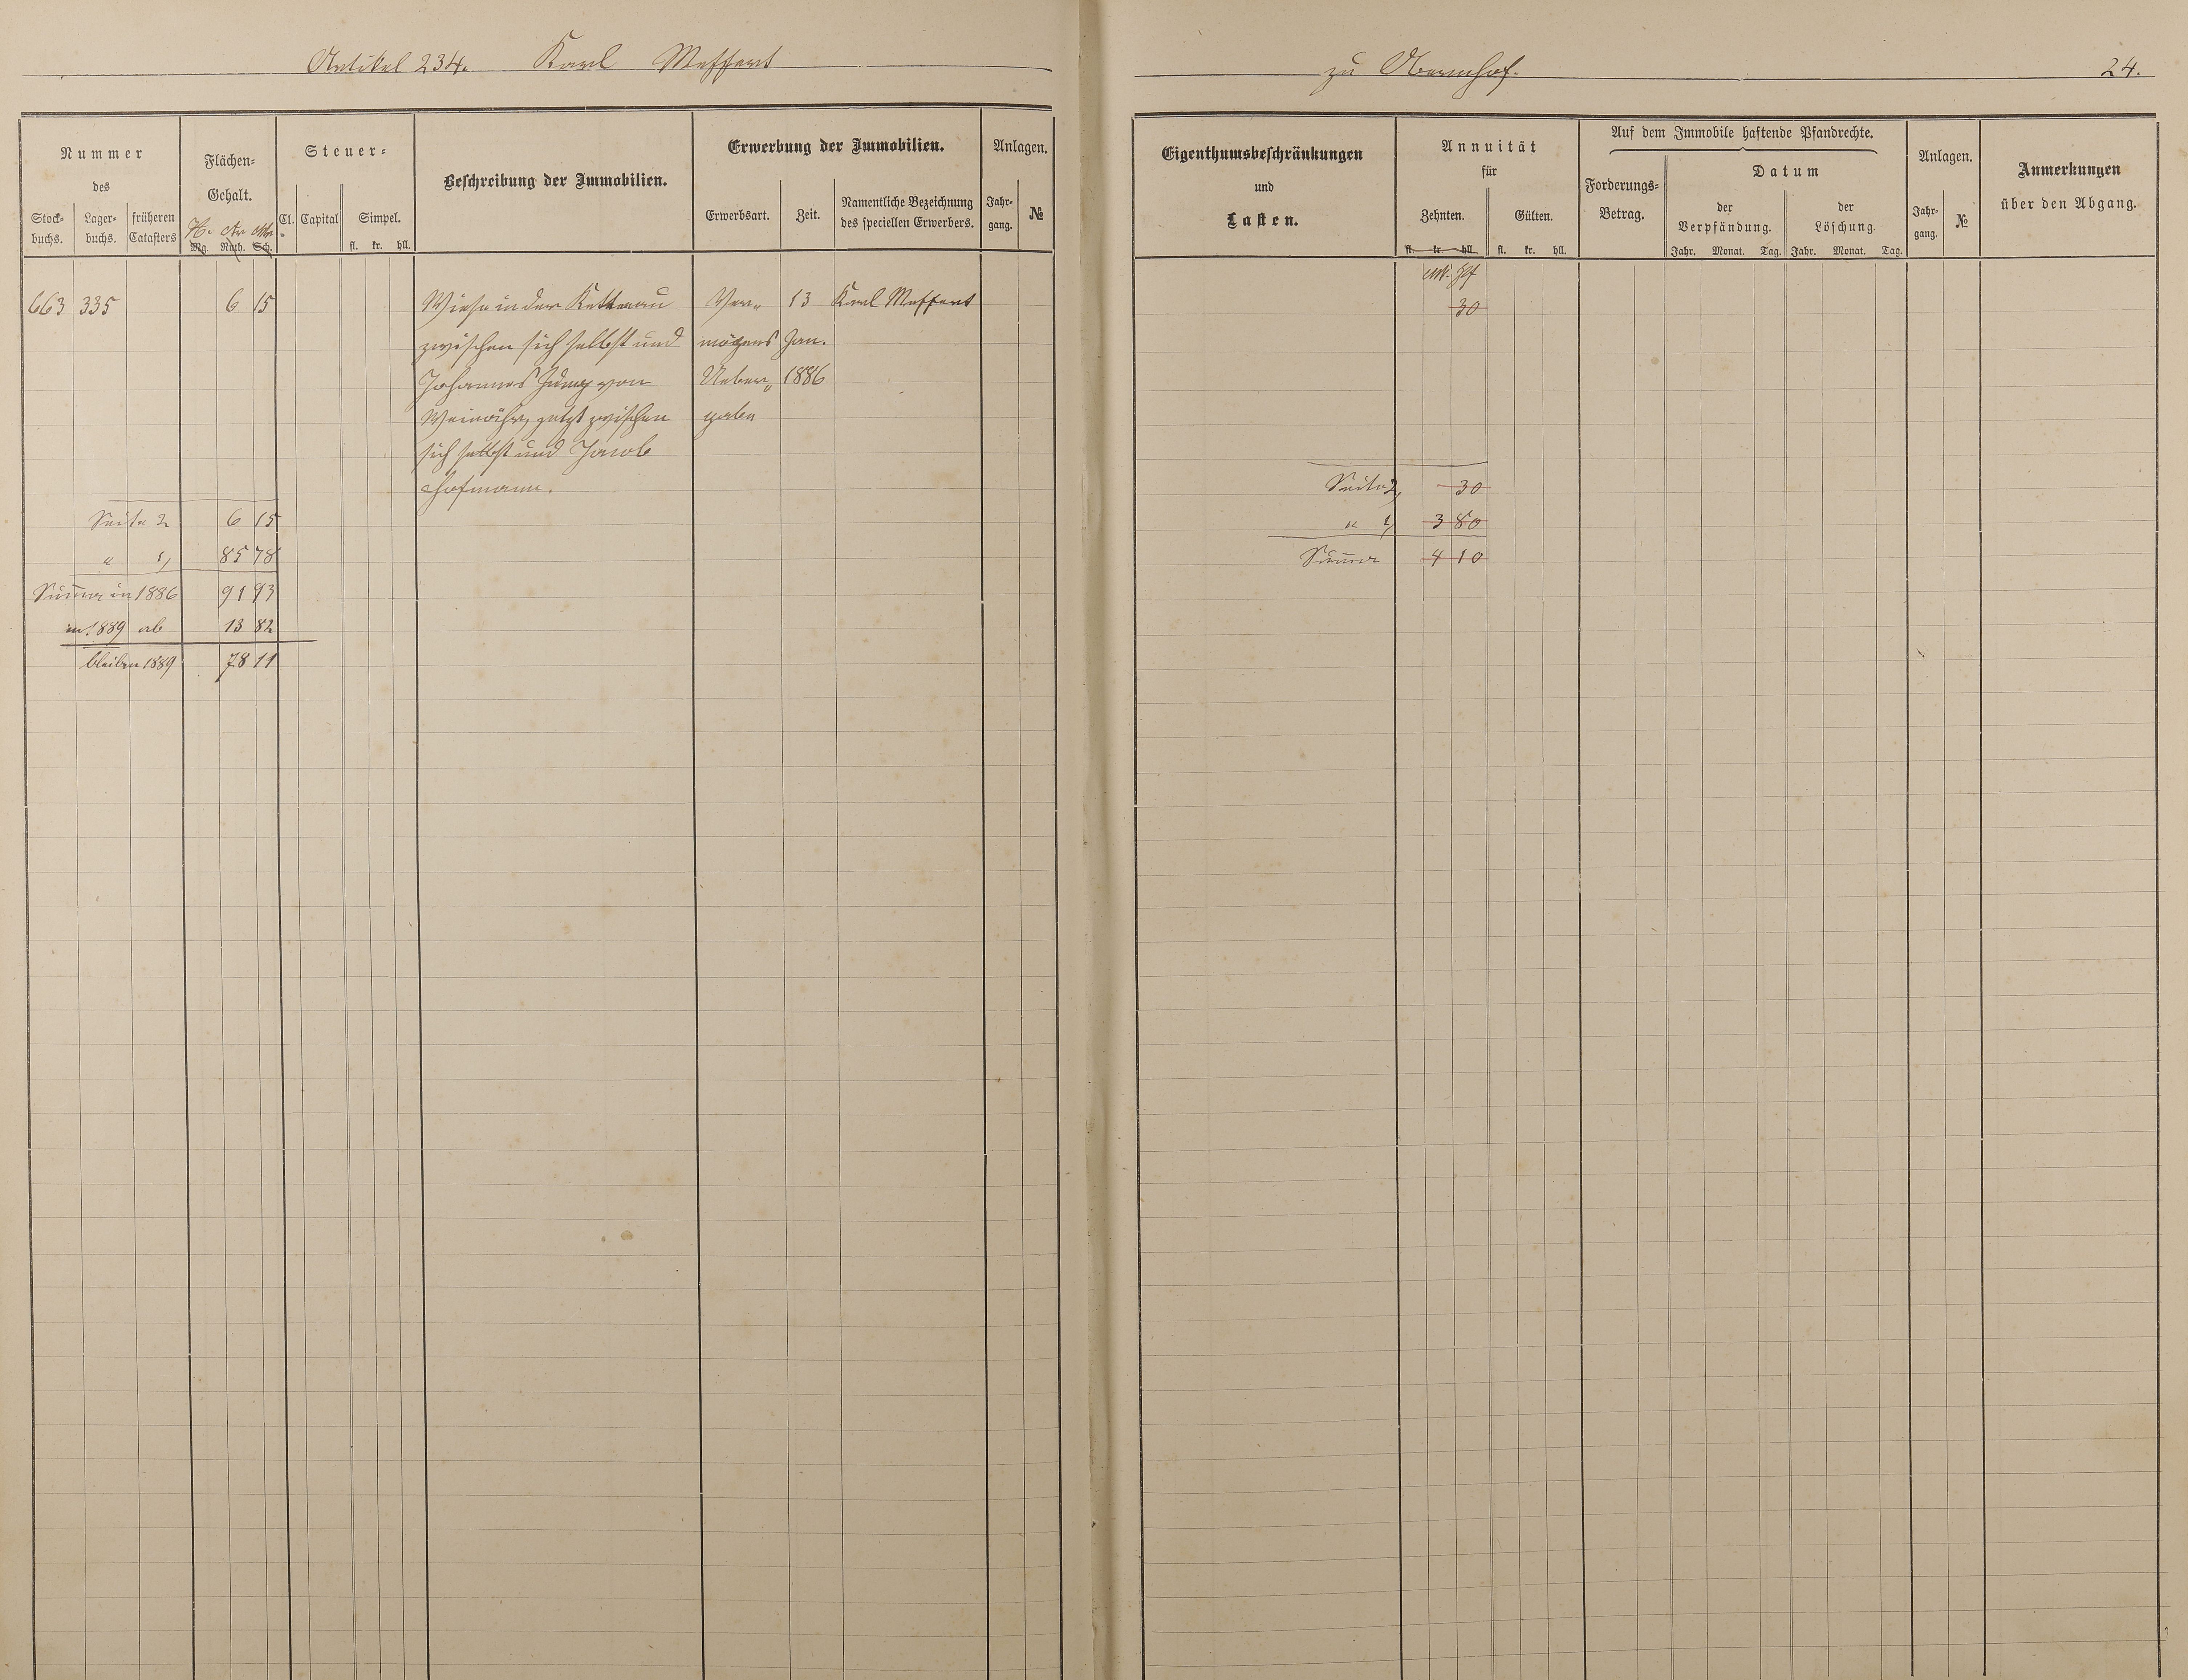 Artikel 234. Karl Meffert
zu Obernhof. 24.
Nummer
des
Stock-
buchs.
Lager-
buchs.
früheren
Catasters
Flächen-
Gehalt.
H. Ar Mr
Mg. Ruth. Sch.
Steuer-
Cl. Capital Simpel.
fl. kr. hll.
Beschreibung der Immobilien.
Erwerbung der Immobilien.
Erwerbsart. Zeit.
Namentliche Bezeichnung
des speciellen Erwerbers.
Anlagen.
Jahr-
gang.
№
663 335 6 15 Wiese in der Kettenau Ver- 13 Karl Meffert
zwischen sich selbst und mögens Jan.
Johannes Jung von Ueber- 1886
Weinähr, jetzt zwischen gabe
sich selbst und Jacob
Hofmann.
Seite 2 6 15
" 1, 85 78
Suma in 1886 91 93
in 1889 ab 13 82
bleiben 1889 78 11
Eigenthumsbeschränkungen
und
Lasten.
Annuität
für
Zehnten. Gülten.
fl. kr. hll. fl. kr. hll.
Auf dem Immobile haftende Pfandrechte.
Forderungs-
Betrag.
Datum
der
Verpfändung.
der
Löschung.
Jahr. Monat. Tag. Jahr. Monat. Tag.
Anlagen.
Jahr-
gang.
№
Anmerkungen
über den Abgang.
M. Pf
30
Seite 2, 30
" 1, 3 80
Suma 4 10